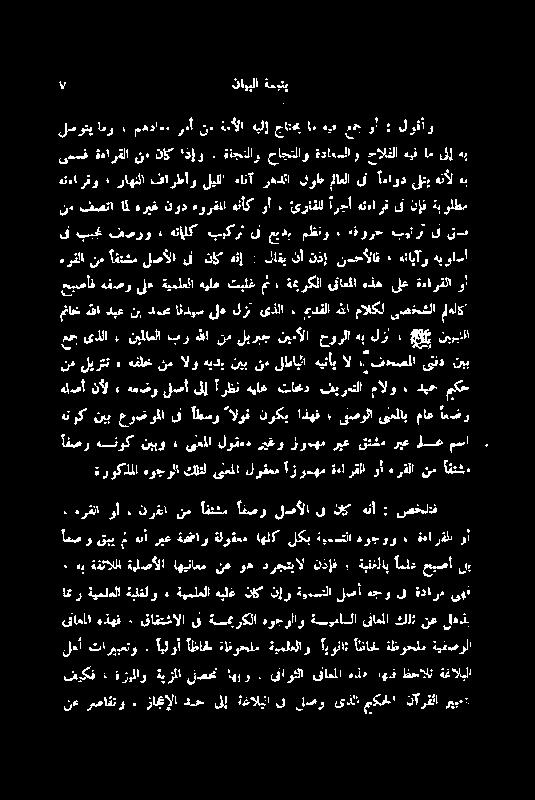 يتيمة البيان ٧
وأقول : أو جمع فيه ما يحتاج إليه الأمة من أمر معادهم ، وما يتوصل
به إلى ما فيه الفلاح والسعادة والنجاح والنجاة . وإذا كان من القراءة فسمى
به لأنه يتلى دواماً فى العالم طول الدهر آناء الليل وأطراف النهار ، وقراءته
مطلوبة فإن فى قراءته أجراً للقارئ ، أو كأنه المقروء دون غيره لما اتصف من
نسق فى ترتيب حروفه ، ونظم بديع فى تركيب كلماته ، ووصف عجيب فى
أسلوبه وآياته ، فالأحسن إذن أن يقال : إنه كان فى الأصل مشتقاً من القرء
أو القراءة على هذه المعانى الكريمة ، ثم غلبت عليه العلمية على وصفه فأصبح
كالعلم الشخصى لكلام الله القديم ، الذى نزل على سيدنا محمد بن عبد الله خاتم
النبيين ﷺ ، نزل به الروح الأمين جبريل من الله رب العالمين ، الذى جمع
بين دفتى المصحف ، لا يأتيه الباطل من بين يديه ولا من خلفه ، تنزيل من
حكيم حميد ، ولام التعريف دخلت عليه نظراً إلى أصل وضعه ، لأن أصله
وضعاً عام بالمعنى الوصفى ، فهذا يكون قولاً وسطاً فى الموضوع بين كونه
اسم علم غير مشتق غير مهموز وغير معقول المعنى ، وبين كونه وصفاً
مشتقاً من القرء أو القراءة مهموزاً معقول المعنى لتلك الوجوه المذكورة
فتلخص : أنه كان فى الأصل وصفاً مشتقاً من القرن ، أو القرء ،
أو القراءة ، ووجوه التسمية بكل كلها معقولة واضحة غير أنه لم يبق وصفاً
بل أصبح علماً بالغلبة ، فإذن لا يتجرد هو عن معانيها الأصلية الثلاثة به ،
فهى مرادة فى وجه أصل التسمية وإن كان عليه العلمية ، ولغلبة العلمية ربما
يذهل عن تلك المعانى السامية والوجوه الكريمة فى الاشتقاق ، فهذه المعانى
الوصفية ملحوظة لحاظاً ثانوياً والعلمية ملحوظة لحاظاً أولياً . وتعبيرات أهل
البلاغة تلاحظ فيها هذه المعانى الثوانى . وبها تحصل المزية والميزة ، فكيف
تعبير القرآن الحكيم الذى وصل فى البلاغة إلى حد الإعجاز ، وتقاصر عن